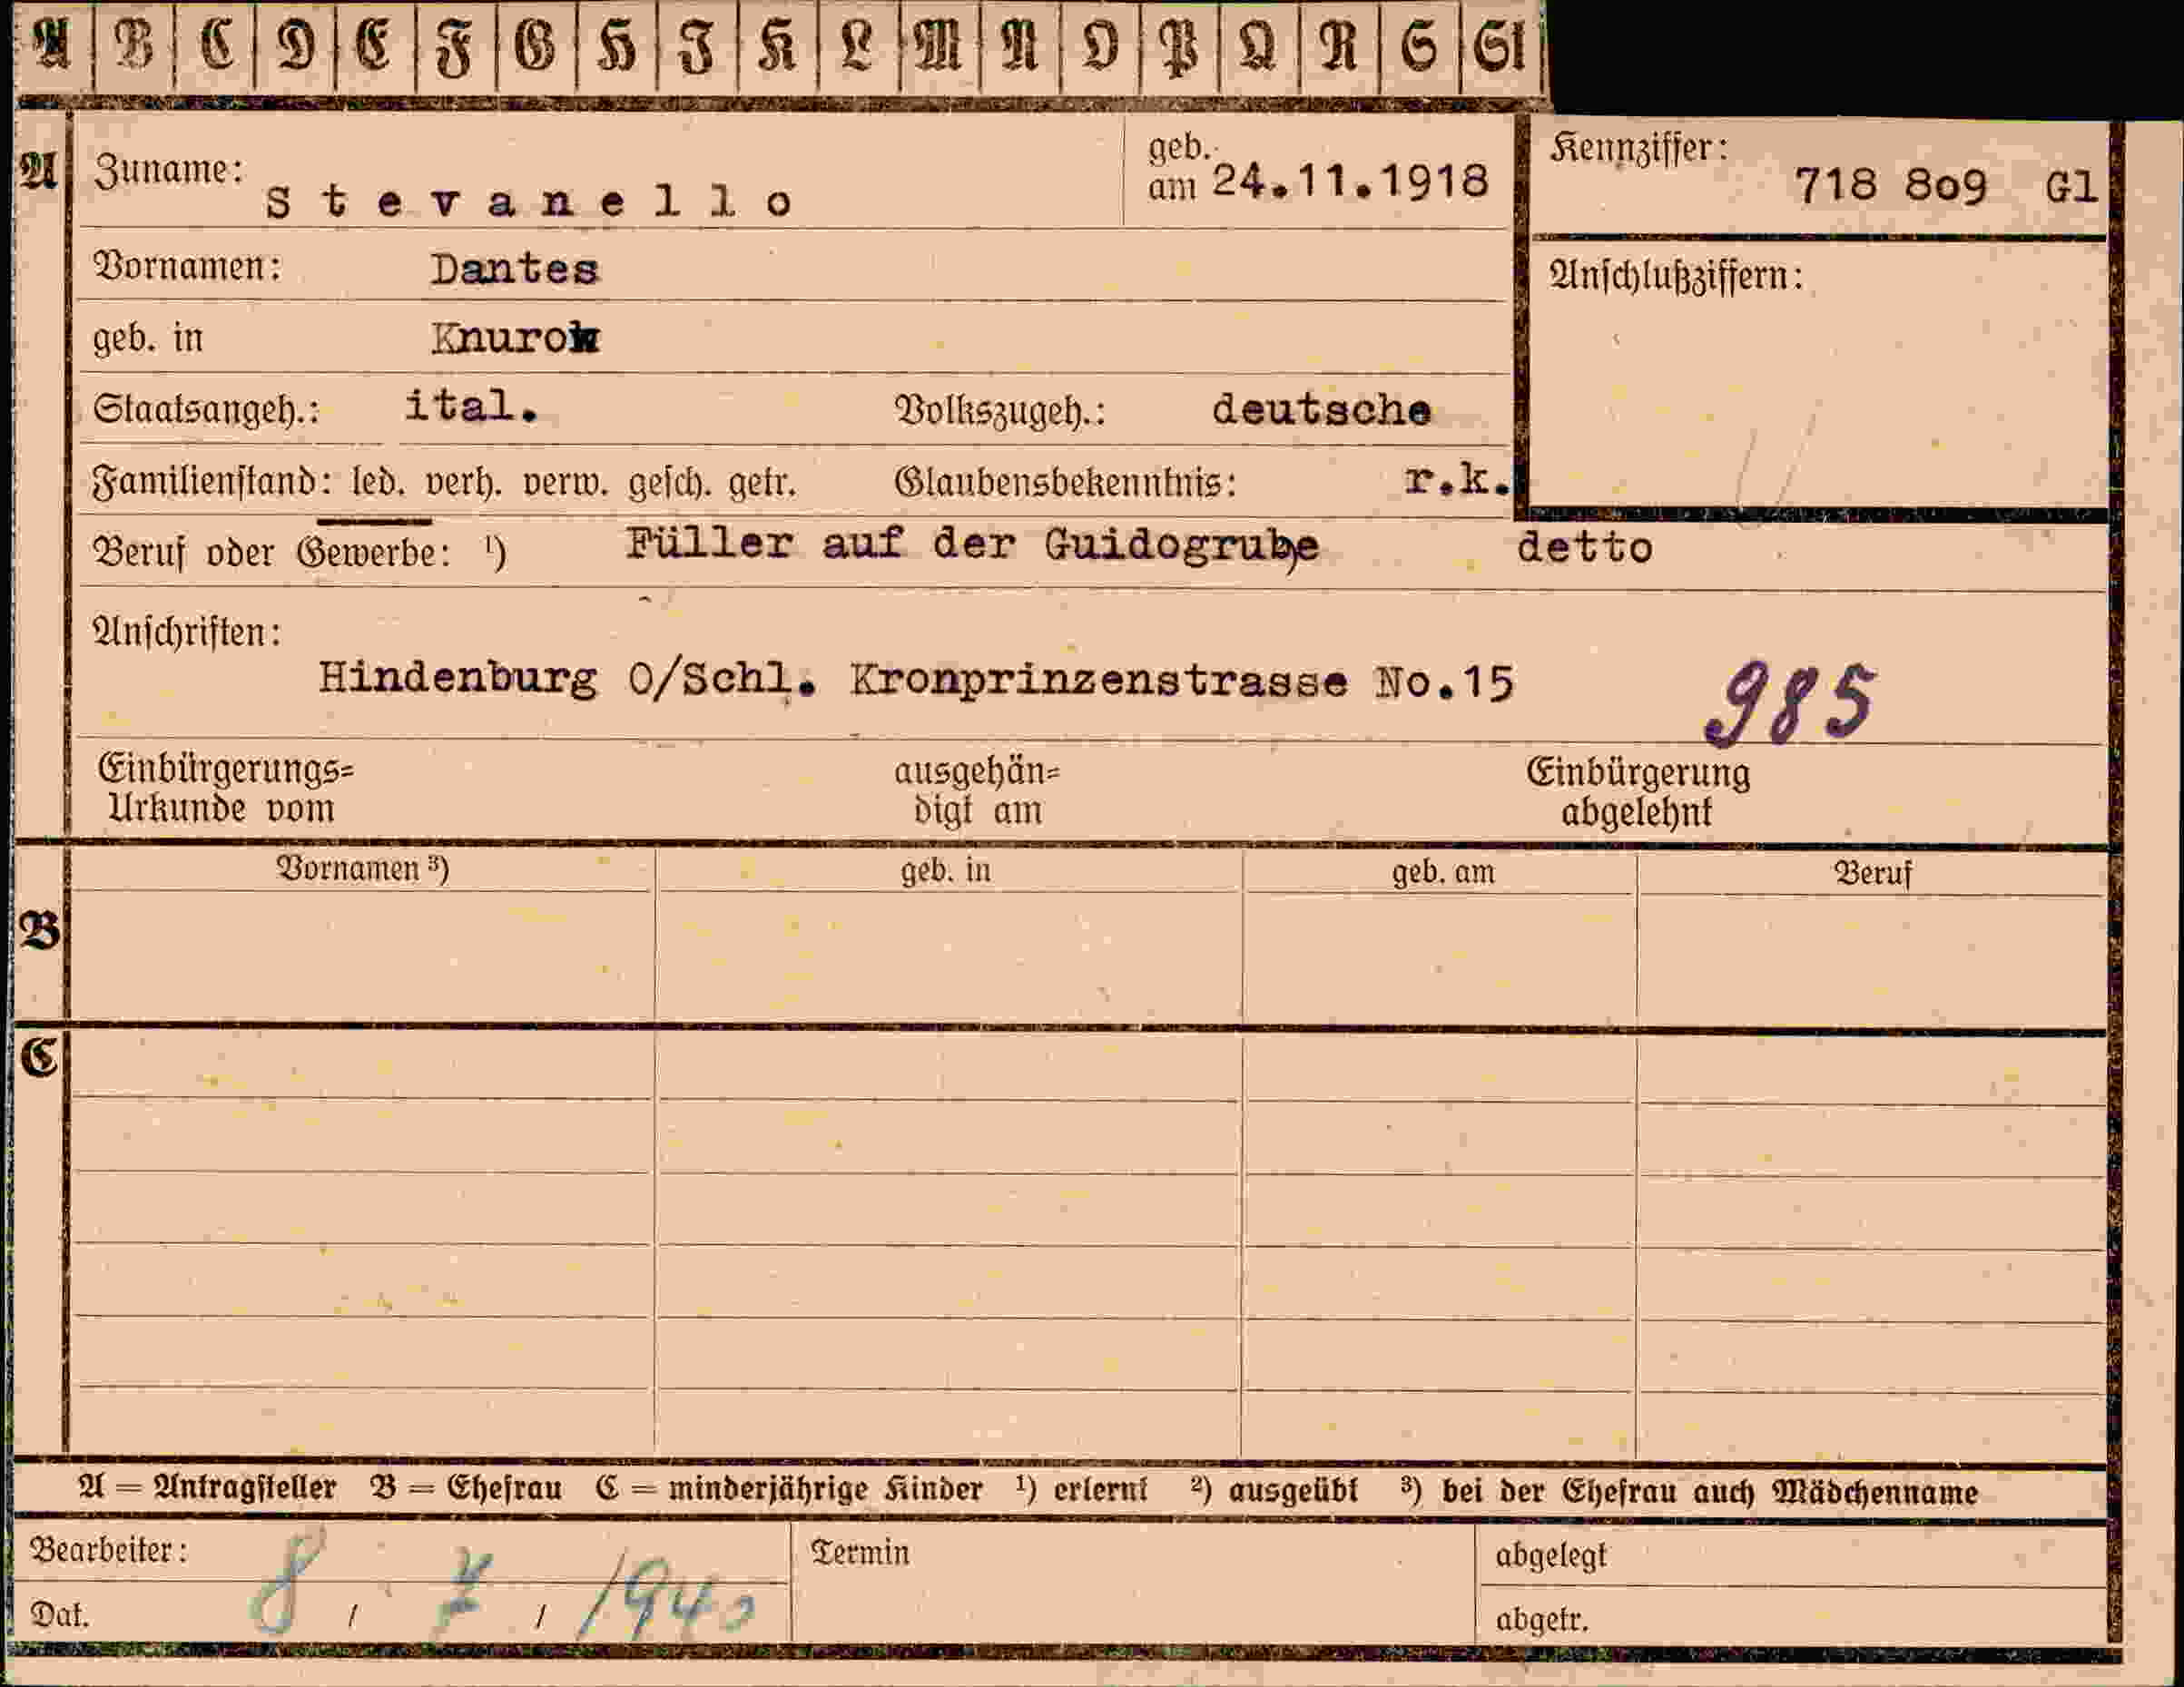 A B C D E F G H I K L M N O P Q R S St
A Zuname: Stevanello geb. am 24.11.1918 Kennziffer: 718 8o9 Gl
Vornamen: Dantes Anschlußziffern:
geb. in Knurow
Staatsangeh.: ital. Volkszugeh.: deutsche
Familienstand: led. verh. verw. gesch. getr. Glaubensbekenntnis: r.k.
Beruf oder Gewerbe: ¹) Füller auf der Guidogrube detto
Anschriften:
Hindenburg O/Schl. Kronprinzenstrasse No.15 985
Einbürgerungs= ausgehän= Einbürgerung
Urkunde vom digt am abgelehnt
Vornamen ³) geb. in geb. am Beruf
B
C
A = Antragsteller B = Ehefrau C = minderjährige Kinder ¹) erlernt ²) ausgeübt ³) bei der Ehefrau auch Mädchenname
Bearbeiter: Termin abgelegt
Dat. 8 / / 1940 abgetr.